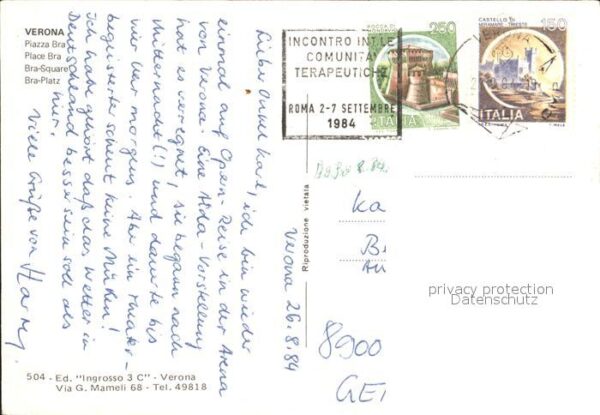 VERONA
Piazza Bra
Place Bra
Bra-Square
Bra-Platz
Lieber Onkel Karl, ich bin wieder
einmal auf Open-Reise in der Arena
von Verona. Eine Aida-Vorstellung
hat es verregnet, sie begann nach
Mitternacht (!) und dauerte bis
vier Uhr morgens. Aber ein Theater-
begeisterter scheut keine Mühen!
Ich habe gehört daß das Wetter in
Deutschland besser sein soll als
hier.
Viele Grüße von
Verona 26.8.84
504 - Ed. "Ingrosso 3 C" - Verona
Via G. Mameli 68 - Tel. 49818
Riproduzione Vietata
INCONTRO INT.LE
COMUNITA'
TERAPEUTICHE
ROMA 2-7 SETTEMBRE
1984
ROCCA DI
250
ITALIA
CASTELLO DI
MIRAMARE - TRIESTE
150
ITALIA
8.84
Ka
B
8900
GE
privacy protection
Datenschutz